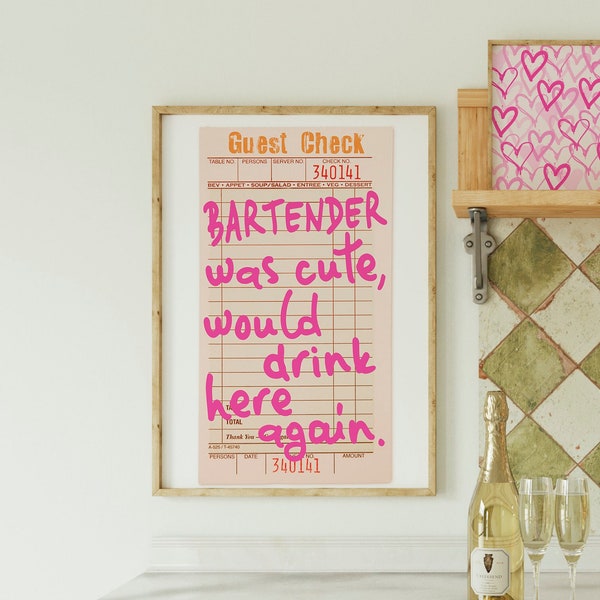 Guest Check
TABLE NO. PERSONS SERVER NO. CHECK NO.
340141
BEV • APPET • SOUP/SALAD • ENTREE • VEG • DESSERT
BARTENDER
was cute,
would
drink
here
again.
TOTAL
Thank You
A-525 / T-45740
PERSONS DATE AMOUNT
340141